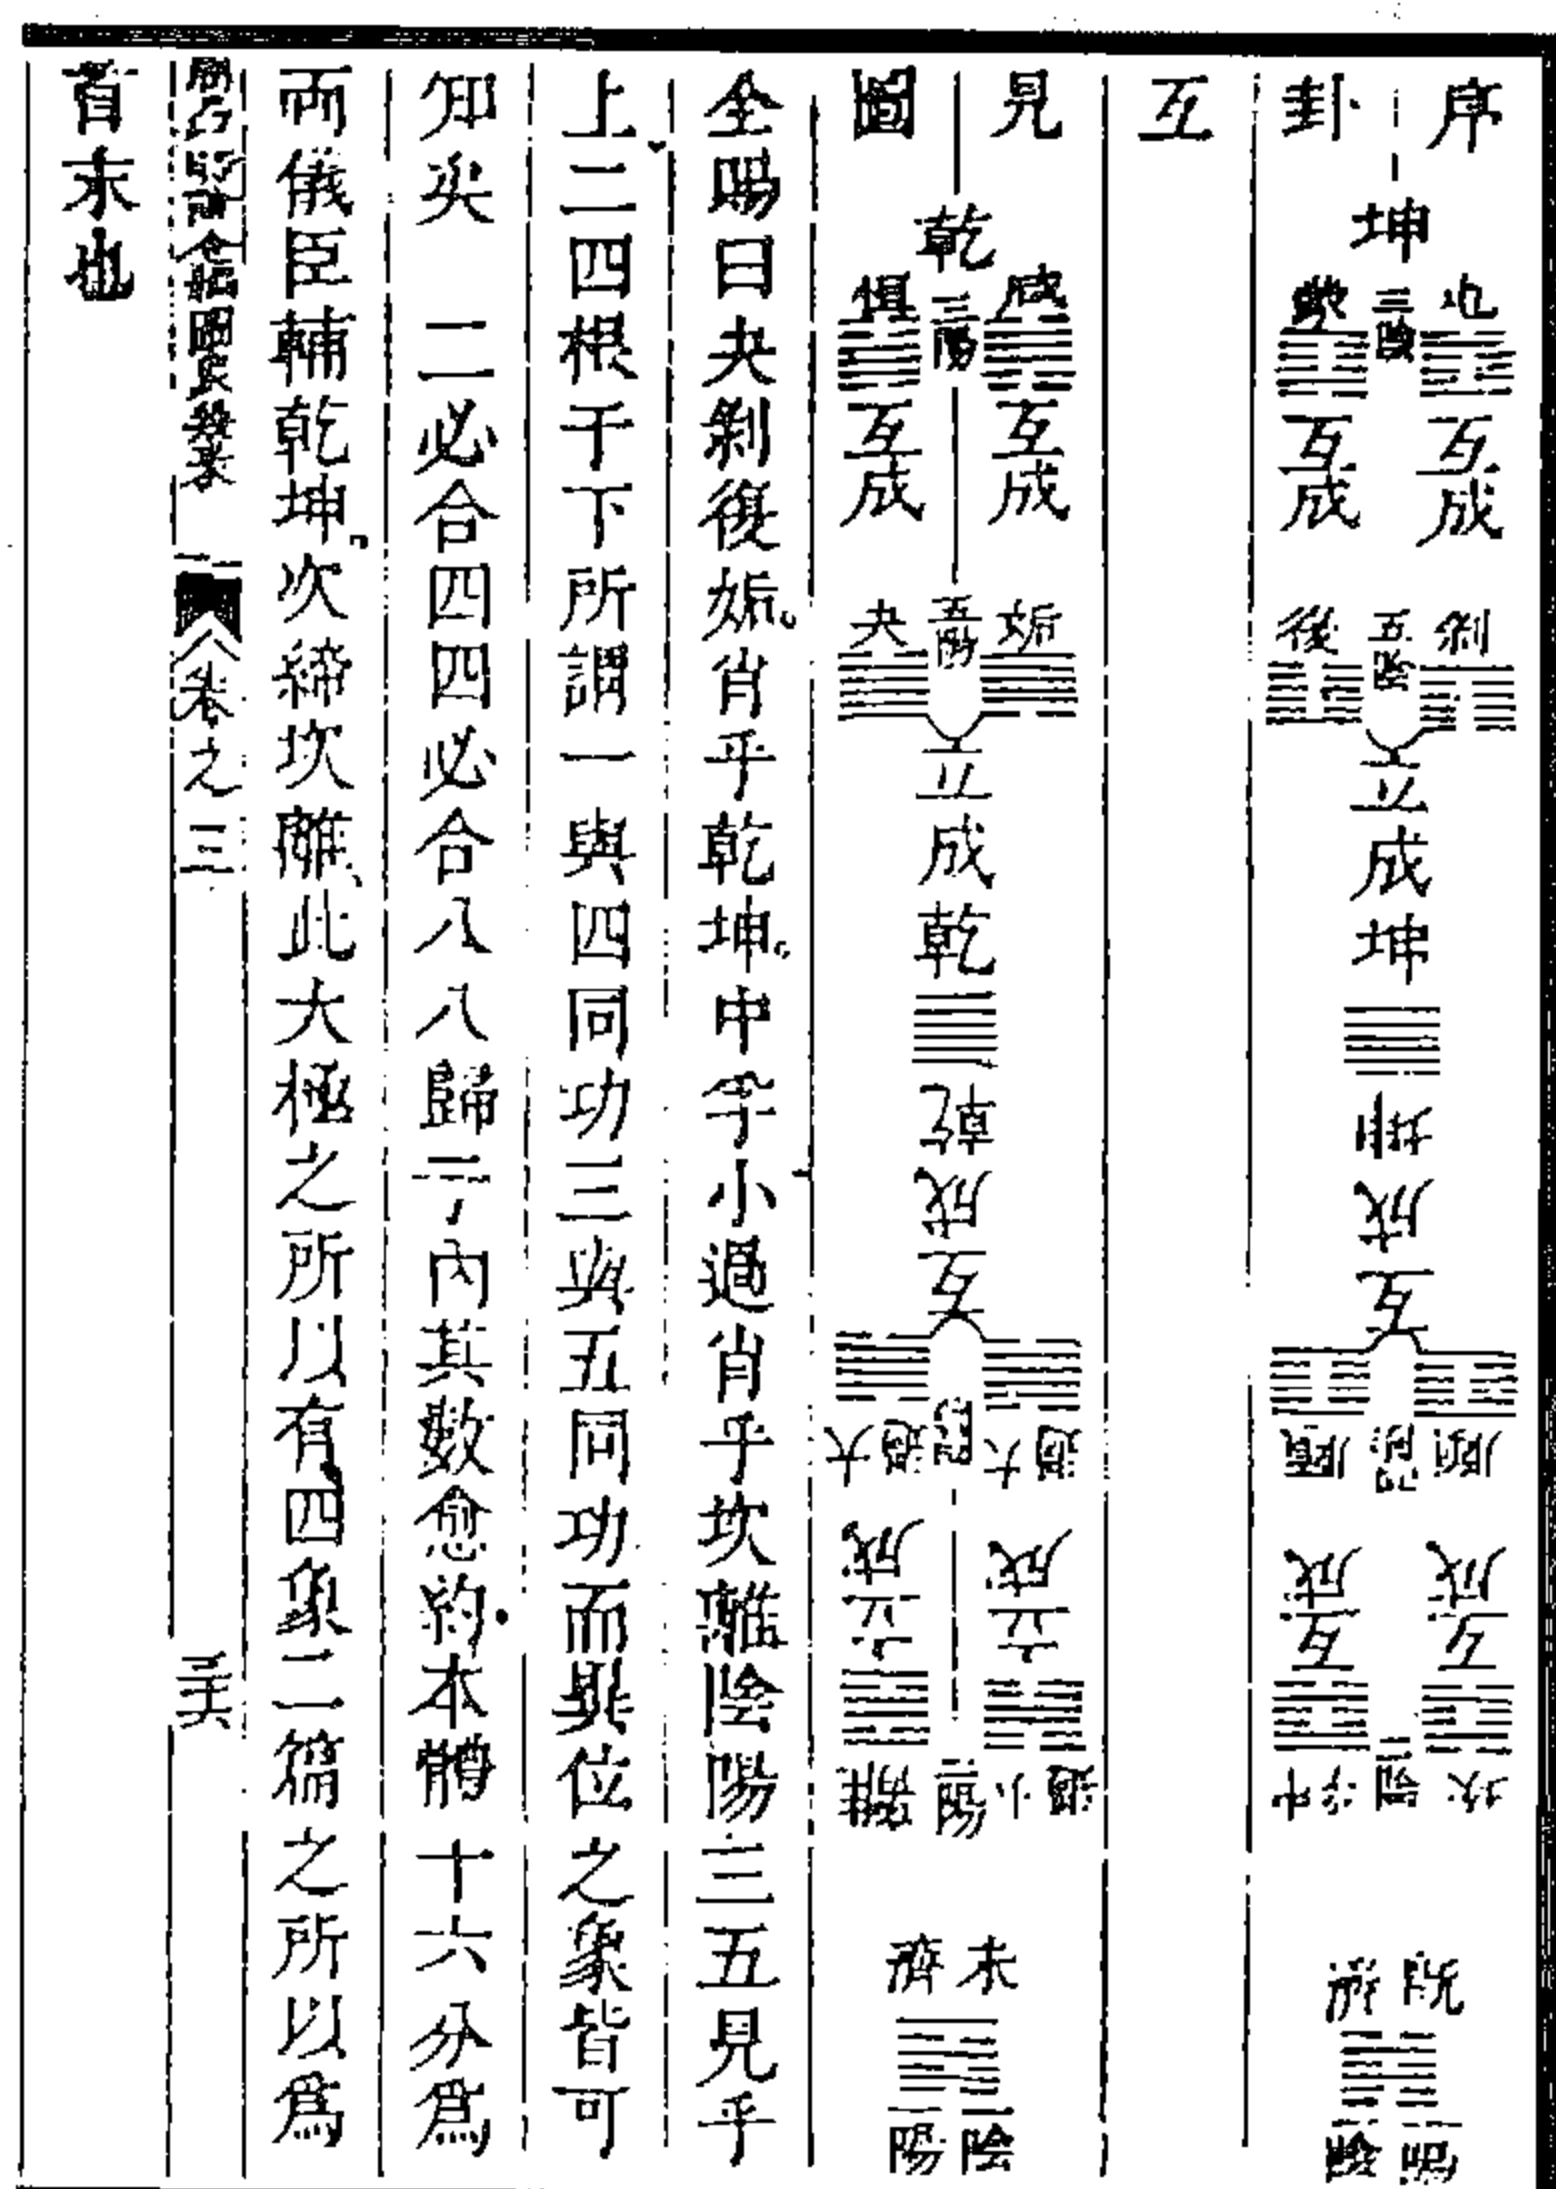 序卦互見圖
坤
屯 三陰 蒙
互成 互成
剝 五陰 復
立成坤
坤成互
頤 四陰 頤
互成 互成
坎 二陽 中孚
既濟
三陰 三陽
乾
咸 三陽 恆
互成 互成
姤 五陽 夬
立成乾
乾成互
大過 四陽 大過
立成 立成
小過 二陽 離
未濟
三陰 三陽
全陽曰夬剝復姤肖乎乾坤中孚小過肖乎坎離陰陽三五見乎
上二四根于下所謂一與四同功三與五同功而異位之象皆可
知矣 二必合四四必合八八歸于內其數愈約本體十六分爲
兩儀臣輔乾坤次締坎離此大極之所以有四象二篇之所以爲
卷之三
首末也